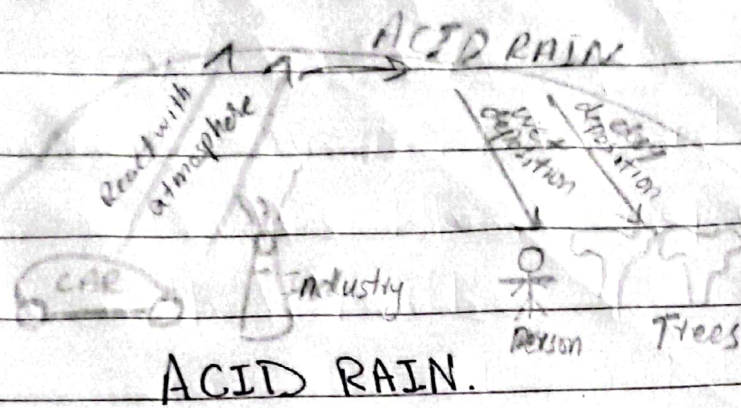 ACID RAIN
React with
atmosphere
wet
deposition
dry
deposition
CAR
Industry
Person
Trees
ACID RAIN.